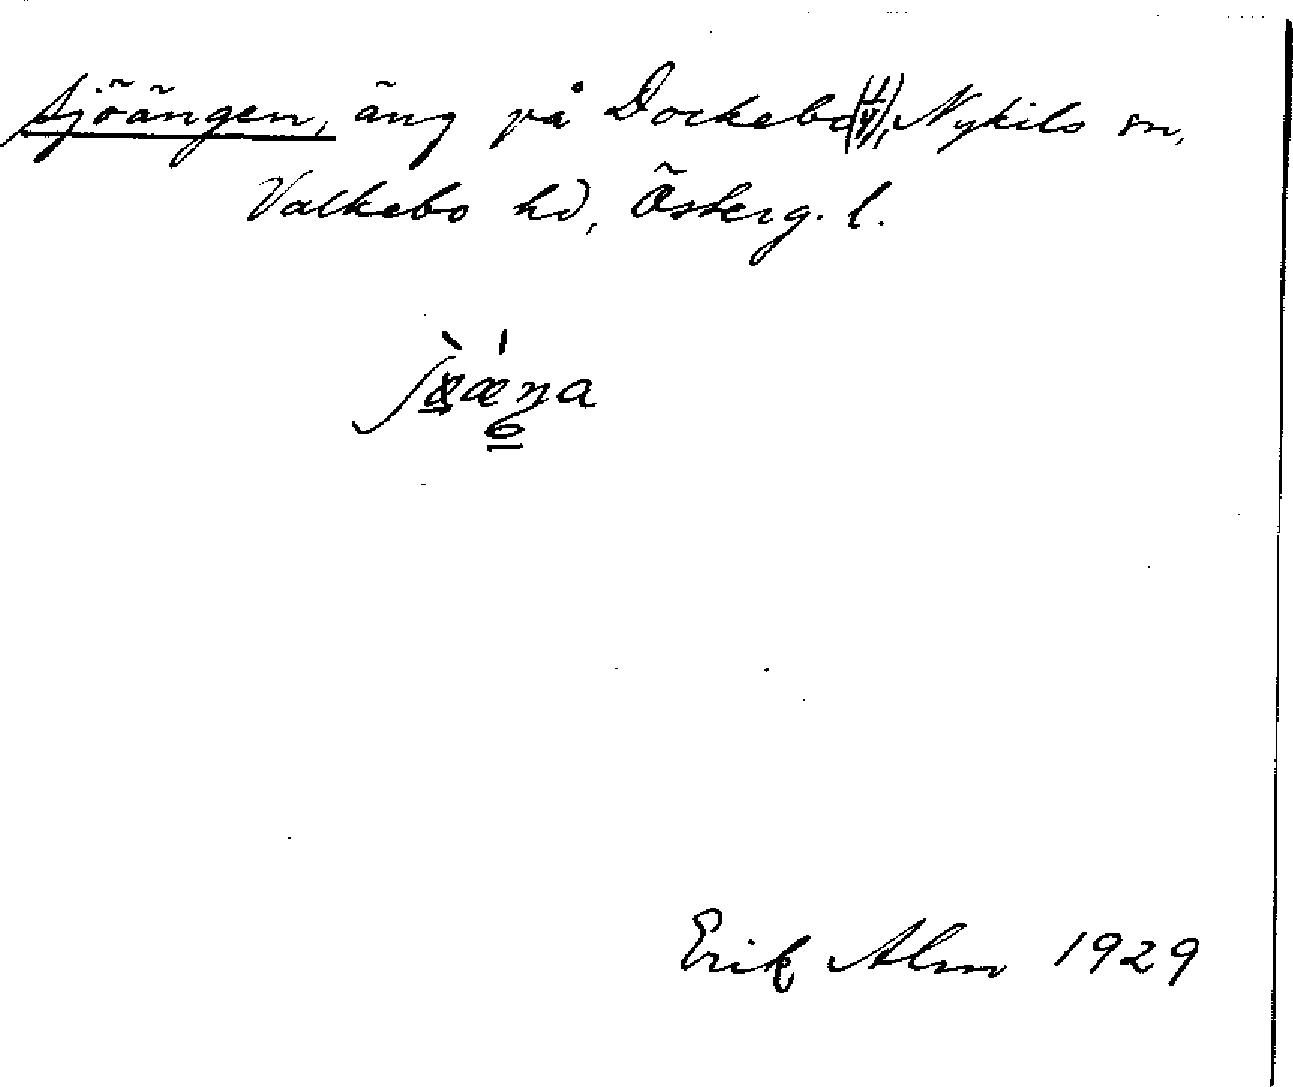 Sjöängen, äng på Dockebo, Nykils sn,
Valkebo hd, Österg. l.
Erik Alm 1929